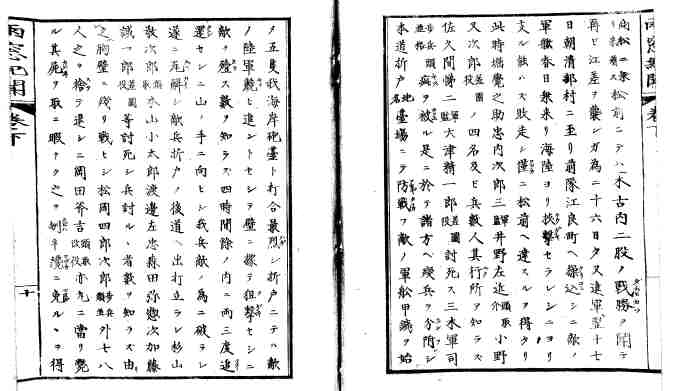 商松ニ乗松前ニテハ木古内二股ノ戦勝ヲ聞テ
再ヒ江差ヲ襲シガ為ニ十六日夕又進軍翌十七
日朝清部村ニ至リ前隊江良町ヘ繰込シニ敵ノ
軍艦春日乗来リ海陸ヨリ挟撃セラレシニヨリ
支ル能ハス敗走シ僅ニ松前ヘ達スルヲ得タリ
此時堀覚之助忠内次郎三井野左近小野
又次郎ノ四名及ヒ兵数人其行所ヲ知ラス
佐久間悌二大津精一郎討死ス三木軍司
頭痛ヲ被ル是ニ於テ諸方ヘ残兵ヲ分防シ
本道折戸臺場ニテ防戦ス敵ノ軍舩甲鐡ヲ始
メ五隻我海岸砲臺ト打合最烈シ折戸ニテハ敵
ノ陸軍競ヒ進ントセシヲ壁ニ縁テ狙撃セシニ
敵ヲ殪ス数ヲ知ラス四時間餘ノ内ニ両三度追
還セシニ山ノ手ニ向ヒシ我兵敵ノ為ニ破ラレ
遂ニ瓦解シ敵兵折戸ノ後道ヘ出打立ラレ杉山
敬次郎水山小太郎渡邊左忠森田弥惣次加藤
誠一郎等討死シ兵討ルヽ者数ヲ知ラス由
之胸壁ニ残リ戦ヒシ松岡四郎次郎外七八
人之ヲ捨テ退シニ岡田斧吉亦丸ニ當リ斃
ル其屍ヲ取ニ暇ナク之ヲ
十